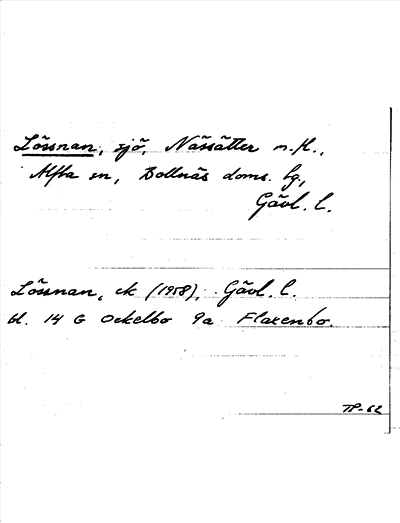 Lössnan, sjö, Nässätter m.fl.,
Alfta sn, Bollnäs doms. lg,
Gävl. l.
Lössnan, ek (1958), Gävl. l.
bl. 14 G Ockelbo 9a Flaxenbo.
TP-62